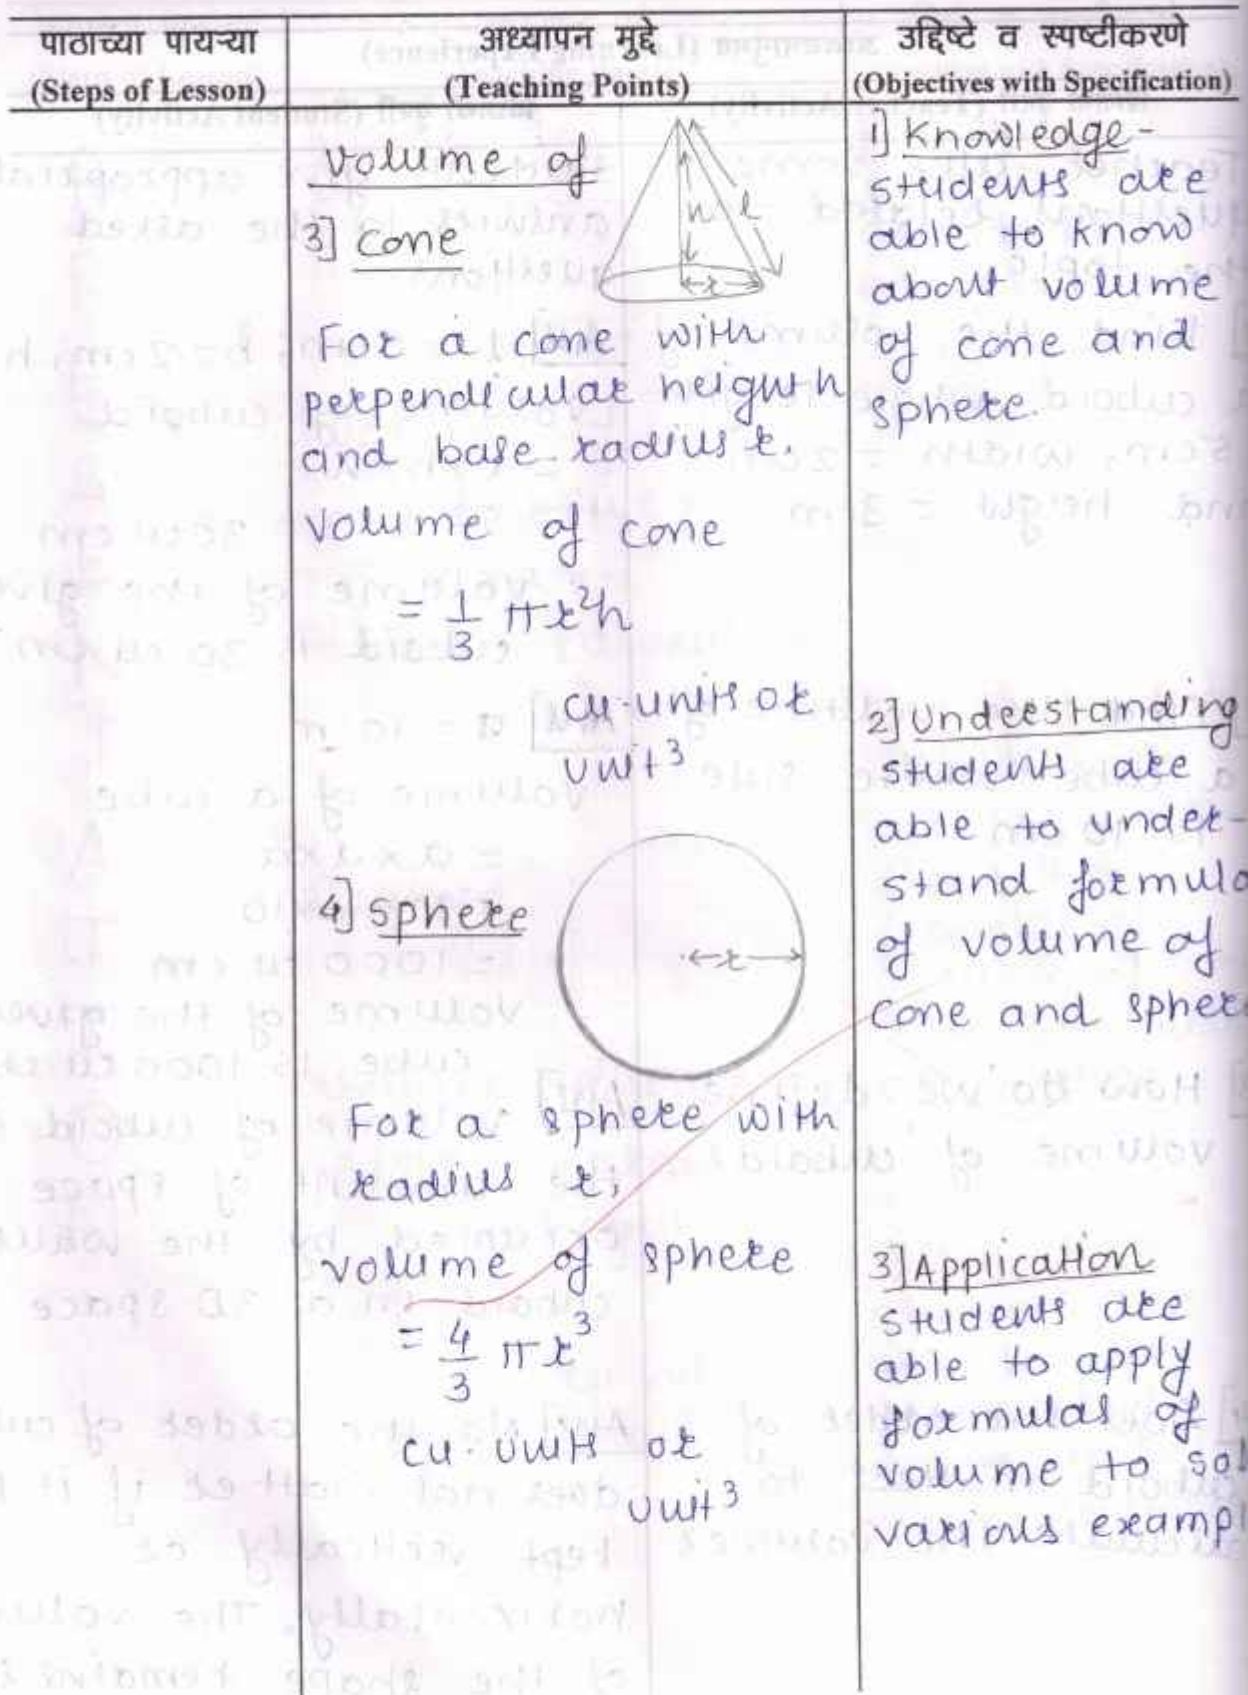 पाठाच्या पायऱ्या
(Steps of Lesson)
अध्यापन मुद्दे
(Teaching Points)
उद्दिष्टे व स्पष्टीकरणे
(Objectives with Specification)
volume of
3] cone
h l
r
For a cone with
perpendicular heigth h
and base radius r.
volume of cone
= 1/3 πr²h
cu. units or
unit³
4] sphere
r
For a sphere with
radius r,
volume of sphere
= 4/3 πr³
cu. units or
unit³
1] Knowledge-
students are
able to know
about volume
of cone and
sphere.
2] Understanding
students are
able to under-
stand formula
of volume of
cone and sphere
3] Application
students are
able to apply
formulas of
volume to sol
various exampl